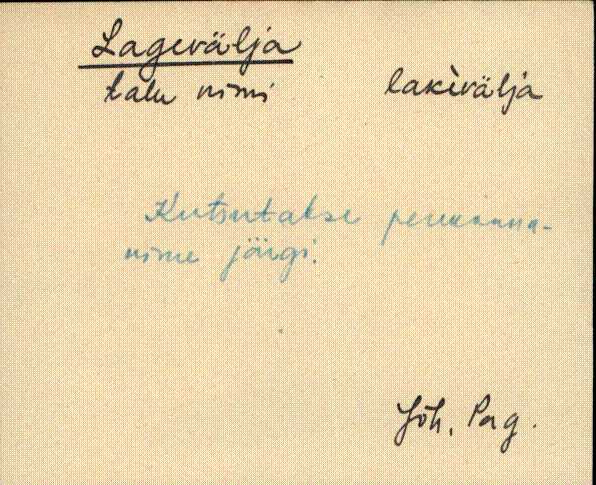 Lagevälja
talu nimi lakìvälja
Kutsutakse perekonna-
nime järgi.
Jõh. Pag.